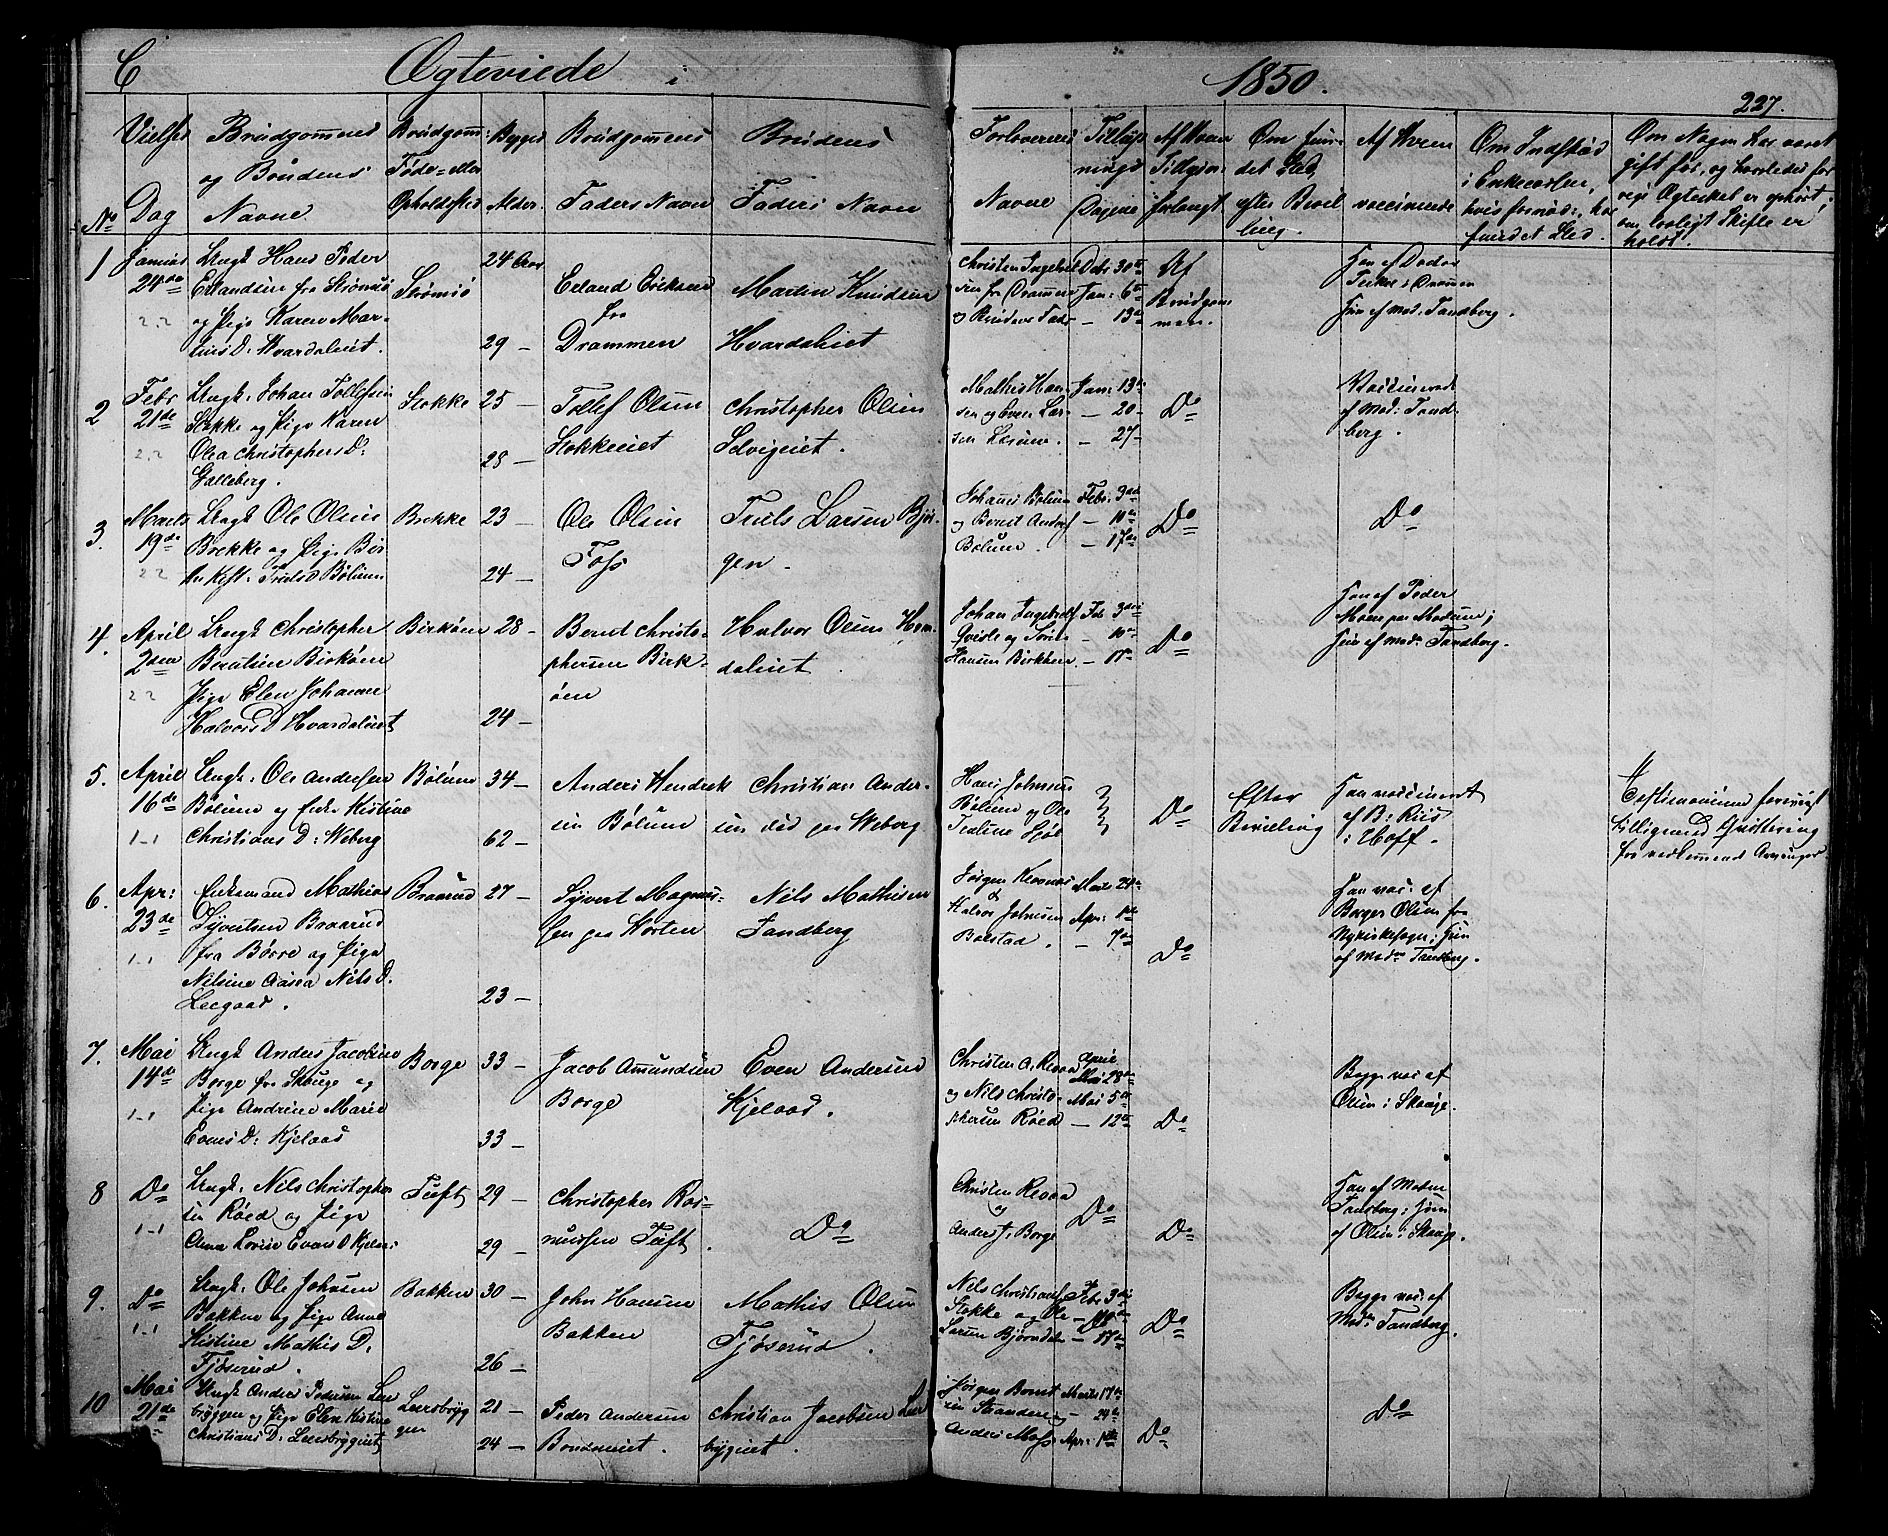 C Ægteviede i 1850.
227.
No
Vielses Dag
Brudgommens og Brudens Navne
Brudgom: Føde- eller Opholdssted
Begges Alder.
Brudgommens Faders Navn
Brudens Faders Navn
Forlovernes Navne
Tillysnings Dagene
Af Hvem Tillysn: forlangt
Om fundet Sted efter Bevilling.
Af Hvem vaccinerede
Om Indskud i Enkecassen, hvis fornød:, har fundet Sted.
Om Nogen har været gift før, og hvorledes forrige Ægteskab er ophørt; om lovligt Skifte er holdt.
1
Januar 24de
Ungk. Hans Peder
Erlandsen fra Strømsø
og Pige Karen Mar-
tins D: Hvardaleiet.
Strømsø
24 Aar
29 —
Erland Eriksen
fra
Drammen
Martin Knudsen
Hvardaleiet
Christen Ingebret
sen fra Drammen
og Brudens Fader
Debr 30te
Jan: 6te
— 13de
Af
Brudgom
men.
Han af Doctor
i Drammen
Hun af Med. Tandberg.
2
Febr
21de
Ungk. Johan Tollefsen
Stokke og Pige Karen
Olea Christophers D:
Galleberg.
Stokke
25 —
28 —
Tollef Olsen
Stokkeeiet
Christopher Olsen
Solvigeiet.
Mathis Han-
sen og Even Lar-
sen
Jan: 13de
— 20-
— 27-
Do
Vaccinerede
af Med: Tand-
berg.
3.
Marts
19de
Ungk Ole Olsen
Brekke og Pige Ber
the Kirst: Truls D Bølum
Brekke
23 —
24 —
Ole Olsen
Foss
Truls Larsen Bjør-
gen.
Johannes Bølum
og Bernt Anders
Bølum.
Febr: 3die
— 10de
— 17de
Do
Do
4.
April
2den
Ungk Christopher
Berntsen Birkøen
Pige Elen Johanne
Halvors D Hvardaleiet
Birkøen
28 —
24 —
Bernt Christo-
phersen Birk-
øen
Halvor Olsen Hvar-
daleiet.
Johan Ingebretsen
Qvisle og Søren
Hansen Birkøen
Feb: 3die
— 10de
— 17de
Do
Han af Peder
Moen paa Modum;
Hun af Med. Tandberg.
5.
April
16de
Ungk: Ole Andersen
Bølum og Enke Kistine
Christians D: Weberg
Bølum
34 —
62 —
Anders Hendrek
sen Bølum
Christian Ander-
sen død paa Weberg
Hans Johnsen
Bølum og Ole
Do
Efter
Bevilling
Han vaccineret
af B: Riis
i Hoff.
Testimonium forevist
tilligemed Qvittering
fra vedkommende Arvinger
6.
Apr:
23de
Enkemand Mathias
Syvertsen Braarud
fra Borre og Pige
Nilsine Aasta Nils D.
Leegaard.
Braarud
27 —
23 —
Syvert Magnus-
sen paa Horten
Nils Mathisen
Sandberg
Jørgen Revaas
&
Halvor Johnsen
Bolstad.
Marts 24de
Apr: 1ste
— 7de
Do
Han vac: af
Borger Olsen fra
Nykirkesogn; Hun
af Med: Tandberg.
7.
Mai
14de
Ungk Anders Jacobsen
Borge fra Skouge og
Pige Andrine Marie
Evens D: Kjelaas
Borge
33 —
33 —
Jacob Amundsen
Borge
Even Andersen
Kjelaas.
Christen A. Revaa
og Nils Christo-
phersen Røed
April
28de
Mai 5te
— 12te
Do
Begge vac: af
Olsen i Skouge.
8
Do
Ungk. Nils Christopher
sen Røed og Pige
Anna Lovise Evens D Kjelaas:
Tuft
29 —
29 —
Christopher Ras-
mussen Tuft.
Do
Christen Revaa
og
Anders J. Borge
Do
Do
Han af Meden
Tandberg; Hun
af Olsen i Skouge.
9.
Do
Ungk: Ole Johnsen
Bakken og Pige Anne
Kistine Mathis D.
Fjøserud.
Bakken
30 —
26 —
John Hansen
Bakken
Mathis Olsen
Fjøserud.
Nils Christians
Stokke og Ole
Larsen Bjørndalen
Feb: 3die
— 10de
— 17de
Do
Begge vac: af
Med: Tandberg.
10
Mai
21de
Ungk Anders Pedersen Leer
bryggen og Pige Elen Kistine
Christians D: Leersbrygeiet
Leersbryg
gen
21 —
24 —
Peder Andersen
Bondeeiet.
Christian Jacobsen Leer
brygeiet.
Jørgen Bernt
sen Stranden og
Anders Moss
Marts 17de
— 24de
Apr: 1ste
Do
Do